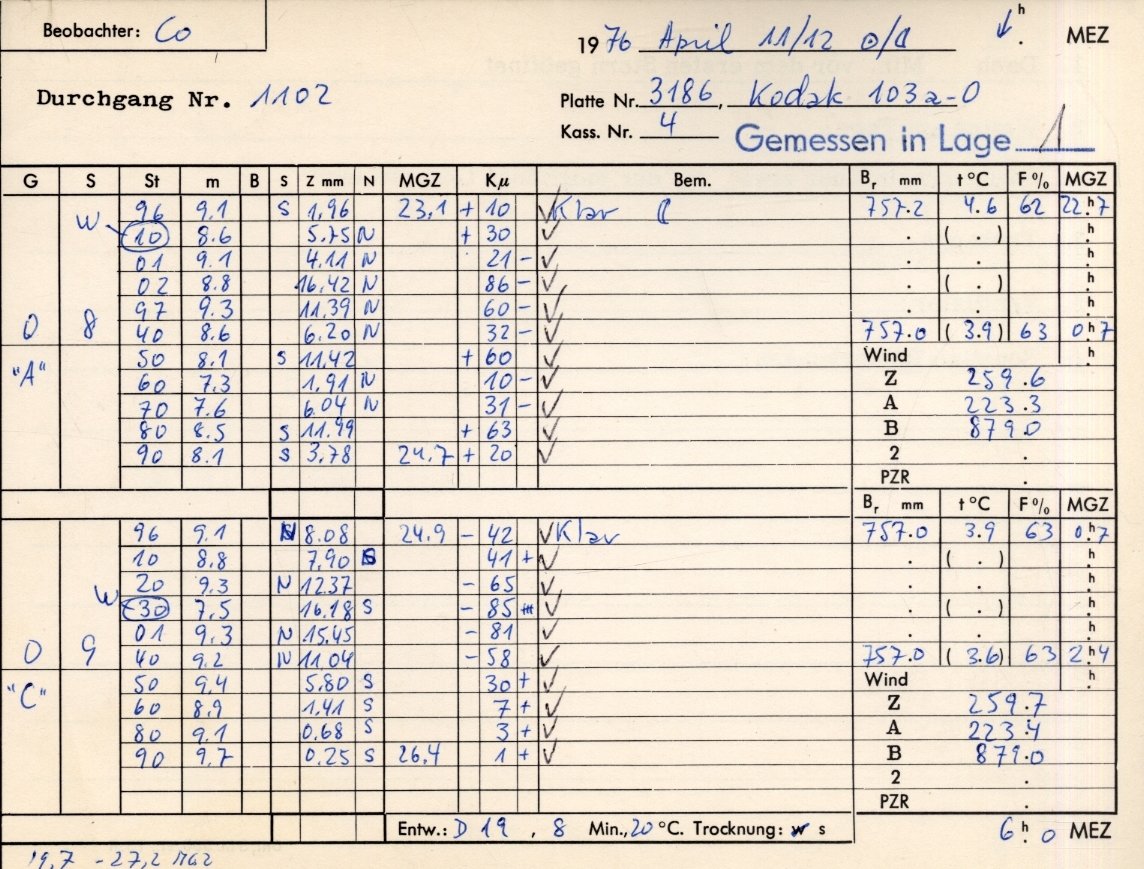 Beobachter: Co
1976 April 11/12 ⊙/☾ h . MEZ
Durchgang Nr. 1102
Platte Nr. 3186, Kodak 103a-O
Kass. Nr. 4 Gemessen in Lage 1
G S St m B S Z mm N MGZ Kμ Bem. Br mm t °C F % MGZ
96 9.1 S 1,96 23,1 + 10 ✓ Klar ☾ 757.2 4.6 62 22.h7
W (10) 8.6 5.75 N + 30 ✓ . ( . ) h.
01 9.1 4.11 N 21 - ✓ . . h.
02 8.8 16.42 N 86 - ✓ . ( . ) h.
97 9.3 11,39 N 60 - ✓ . . h.
0 8 40 8.6 6.20 N 32 - ✓ 757.0 (3.9) 63 0.h7
"A" 50 8.1 S 11,42 + 60 ✓ Wind h.
60 7.3 1,91 N 10 - ✓ Z 259.6
70 7.6 6.04 N 31 - ✓ A 223.3
80 8.5 S 11.99 + 63 ✓ B 879.0
90 8.1 S 3,78 24,7 + 20 ✓ 2 .
PZR .
Br mm t °C F % MGZ
96 9.1 N 8.08 24.9 - 42 ✓ Klar 757.0 3.9 63 0.h7
10 8.8 7,90 S 41 + ✓ . ( . ) h.
20 9.3 N 12.37 - 65 ✓ . . h.
W (30) 7,5 16.18 S - 85 + ✓ . ( . ) h.
01 9.3 N 15.45 - 81 ✓ . . h.
0 9 40 9.2 N 11,04 - 58 ✓ 757.0 (3.6) 63 2.h4
"C" 50 9.4 5.80 S 30 + ✓ Wind h.
60 8.9 1.41 S 7 + ✓ Z 259.7
80 9.1 0.68 S 3 + ✓ A 223.4
90 9,7 0.25 S 26,4 1 + ✓ B 879.0
2 .
PZR .
Entw.: D 19 , 8 Min., 20 °C. Trocknung: w s 6 h. 0 MEZ
19,7 - 27,2 MGZ